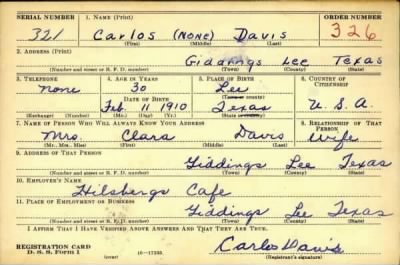 SERIAL NUMBER 1. NAME (Print) ORDER NUMBER
321 Carlos (None) Davis 326
(First) (Middle) (Last)
2. ADDRESS (Print)
Giddings Lee Texas
(Number and street or R. F. D. number) (Town) (County) (State)
3. TELEPHONE 4. AGE IN YEARS 5. PLACE OF BIRTH 6. COUNTRY OF CITIZENSHIP
none 30 Lee
DATE OF BIRTH (Town or county)
Feb. 11 1910 Texas U.S.A.
(Exchange) (Number) (Mo.) (Day) (Yr.) (State or country)
7. NAME OF PERSON WHO WILL ALWAYS KNOW YOUR ADDRESS 8. RELATIONSHIP OF THAT PERSON
Mrs. Clara Davis Wife
(Mr., Mrs., Miss) (First) (Middle) (Last)
9. ADDRESS OF THAT PERSON
Giddings Lee Texas
(Number and street or R. F. D. number) (Town) (County) (State)
10. EMPLOYER'S NAME
Hilsbergs Cafe
11. PLACE OF EMPLOYMENT OR BUSINESS
Giddings Lee Texas
(Number and street or R. F. D. number) (Town) (County) (State)
I AFFIRM THAT I HAVE VERIFIED ABOVE ANSWERS AND THAT THEY ARE TRUE.
Carlos Davis
REGISTRATION CARD
D. S. S. Form 1 (over) (Registrant's signature)